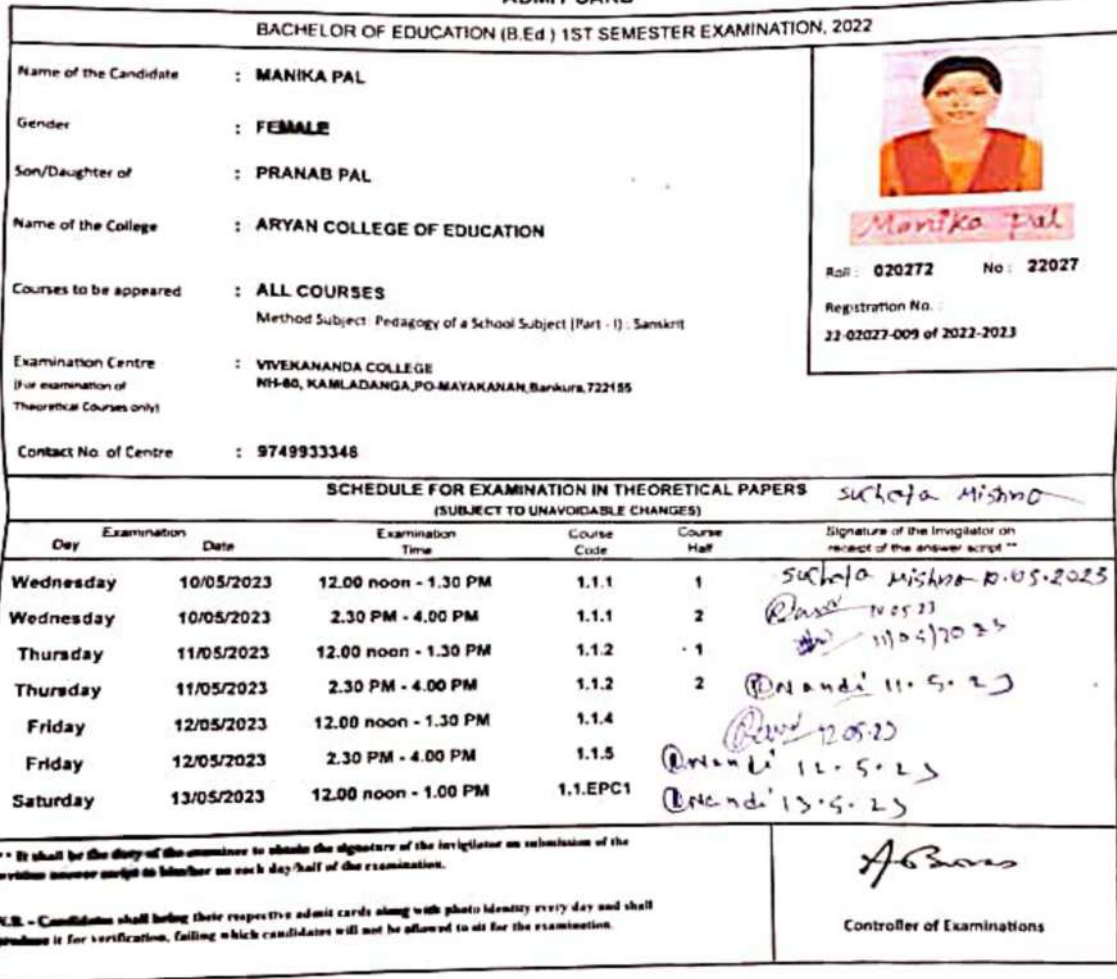 ADMIT CARD
BACHELOR OF EDUCATION (B.Ed ) 1ST SEMESTER EXAMINATION, 2022
Name of the Candidate : MANIKA PAL
Gender : FEMALE
Son/Daughter of : PRANAB PAL
Name of the College : ARYAN COLLEGE OF EDUCATION
Manika Pal
Roll : 020272 No : 22027
Registration No. :
22-02027-009 of 2022-2023
Courses to be appeared : ALL COURSES
Method Subject: Pedagogy of a School Subject (Part - I) : Sanskrit
Examination Centre : VIVEKANANDA COLLEGE
(For examination of NH-60, KAMLADANGA,PO-MAYAKANAN,Bankura,722155
Theoretical Courses only)
Contact No. of Centre : 9749933346
SCHEDULE FOR EXAMINATION IN THEORETICAL PAPERS
(SUBJECT TO UNAVOIDABLE CHANGES)
Sucheta Mishra
Examination Day Date Examination Time Course Code Course Half Signature of the Invigilator on receipt of the answer script **
Wednesday 10/05/2023 12.00 noon - 1.30 PM 1.1.1 1 Sucheta Mishra 10.05.2023
Wednesday 10/05/2023 2.30 PM - 4.00 PM 1.1.1 2 10.05.23
Thursday 11/05/2023 12.00 noon - 1.30 PM 1.1.2 1 11/05/2023
Thursday 11/05/2023 2.30 PM - 4.00 PM 1.1.2 2 Nandi 11.5.23
Friday 12/05/2023 12.00 noon - 1.30 PM 1.1.4 12.05.23
Friday 12/05/2023 2.30 PM - 4.00 PM 1.1.5 Nandi 12.5.23
Saturday 13/05/2023 12.00 noon - 1.00 PM 1.1.EPC1 Nandi 13.5.23
** It shall be the duty of the examinee to obtain the signature of the invigilator on submission of the
written answer script to him/her on each day/half of the examination.
N.B. - Candidates shall bring their respective admit cards along with photo identity every day and shall
produce it for verification, failing which candidates will not be allowed to sit for the examination.
Controller of Examinations